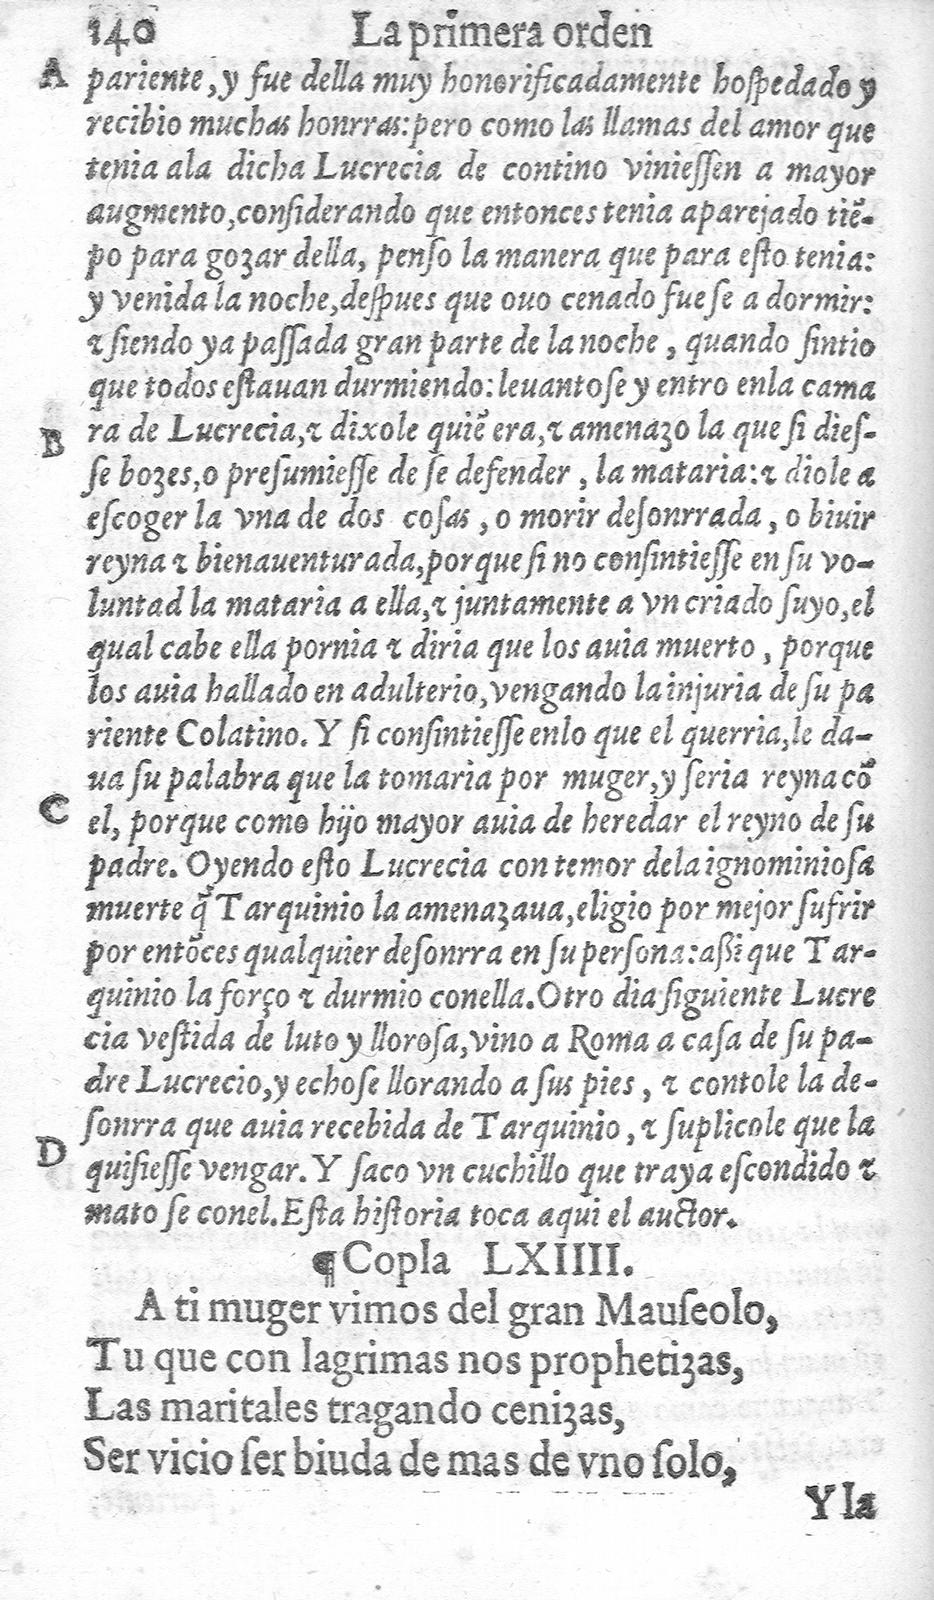 140 La primera orden
A pariente, y fue della muy honorificadamente hoſpedado y
recibio muchas honrras: pero como las llamas del amor que
tenia ala dicha Lucrecia de contino vinieſſen a mayor
augmento, conſiderando que entonces tenia aparejado tiẽ-
po para gozar della, penſo la manera que para eſto tenia:
y venida la noche, deſpues que ouo cenado fueſe a dormir:
⁊ ſiendo ya paſſada gran parte de la noche, quando ſintio
que todos eſtauan durmiendo: leuantoſe y entro enla cama
B ra de Lucrecia, ⁊ dixole quiẽ era, ⁊ amenazo la que ſi dieſ-
ſe bozes, o preſumieſſe de ſe defender, la mataria: ⁊ diole a
eſcoger la vna de dos coſas, o morir deſonrrada, o biuir
reyna ⁊ bienauenturada, porque ſi no conſintieſſe en ſu vo-
luntad la mataria a ella, ⁊ juntamente a vn criado ſuyo, el
qual cabe ella pornia ⁊ diria que los auia muerto, porque
los auia hallado en adulterio, vengando la injuria de ſu pa
riente Colatino. Y ſi conſintieſſe enlo que el querria, le da-
ua ſu palabra que la tomaria por muger, y ſeria reyna cõ
C el, porque como hijo mayor auia de heredar el reyno de ſu
padre. Oyendo eſto Lucrecia con temor dela ignominioſa
muerte q̃ Tarquinio la amenazaua, eligio por mejor ſufrir
por entõces qualquier deſonrra en ſu perſona: aſsi que Tar-
quinio la força ⁊ durmio conella. Otro dia ſiguiente Lucre
cia veſtida de luto y lloroſa, vino a Roma a caſa de ſu pa-
dre Lucrecio, y echoſe llorando a ſus pies, ⁊ contole la de-
D ſonrra que auia recebida de Tarquinio, ⁊ ſuplicole que la
quiſieſſe vengar. Y ſaco vn cuchillo que traya eſcondido ⁊
mato ſe conel. Eſta hiſtoria toca aqui el auctor.
¶Copla LXIIII.
A ti muger vimos del gran Mauſeolo,
Tu que con lagrimas nos prophetizas,
Las maritales tragando cenizas,
Ser vicio ſer biuda de mas de vno ſolo,
Y la